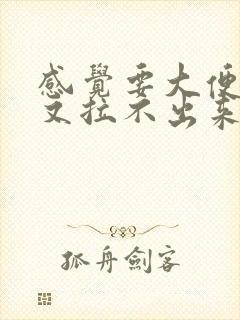 感覺要大便
又拉不出来
孤舟劍客